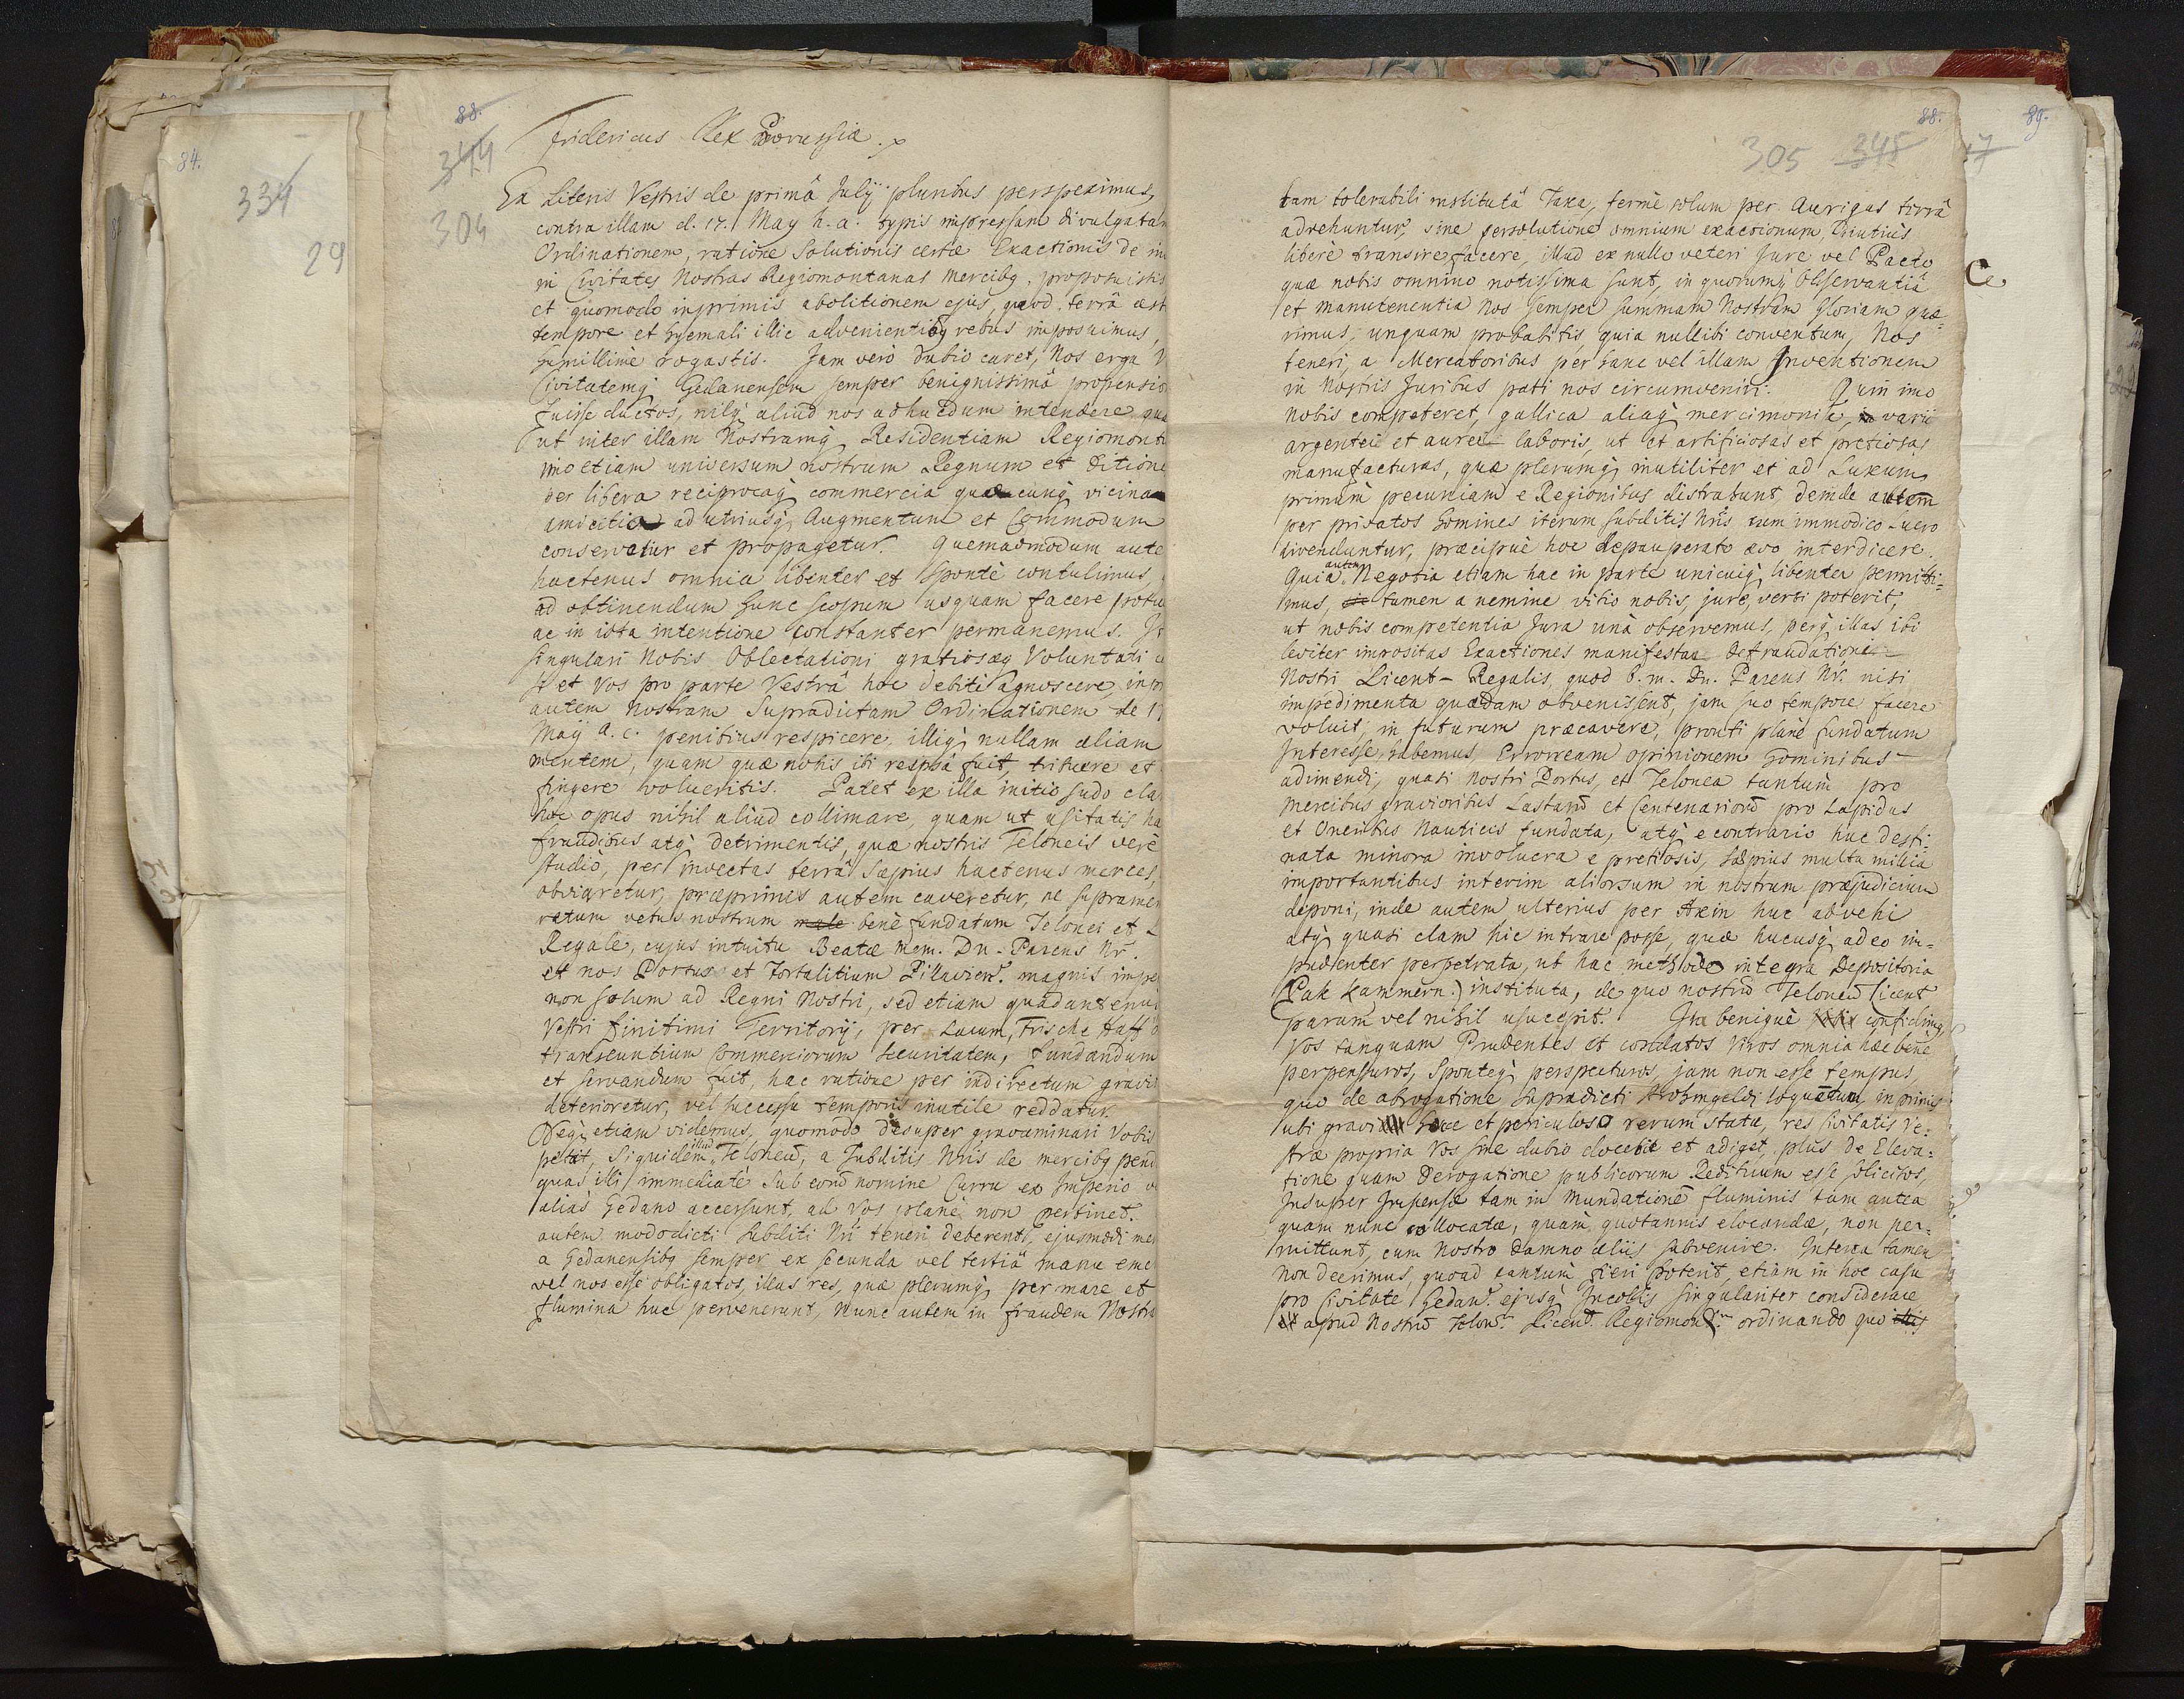 88.
344
304
Fridericus Rex Borussiæ.
Ex Literis Vestris de primâ Julÿ pluribus perspeximus,
contra illam d. 17. May h. a. typis impressam divulgatam
Ordinationem, ratione Solutionis certæ Exactionis de in
in Civitates Nostras Regiomontanas mercibq proposuistis
et quomodo inprimis abolitionem ejus, quod terrâ æst
tempore et hyemali illic advenientibq rebus imposuimus,
humillimè rogastis. Jam verò dubio caret, Nos erga V
Civitatemq Gedanensem semper benignissimâ propensio
fuisse ductos, nilq aliud nos adhuedum intendere qua
ut inter illam Nostramq Residentiam Regiomonta
imo etiam universum nostrum Regnum et Ditione
der libera reciprocaq commercia quæcunq vicina
amicitia ad utriusq Augmentum et Commodum
conservetur et propagetur. Quemadmodum aute
hactenus omnia libenter et Spontè contulimus,
ad obtinendum hunc scopum usquam facere potui
ac in ista intentione constanter permanemus. Is
singulari Nobis Oblectationi gratiosæq Voluntati c
si et Vos pro parte Vestrâ hoc debitè agnoscere, inpr
autem Nostram Supradictam Ordinationem de 17
Maÿ a. c. penitius respicere, illiq nullam aliam
mentem, quam quæ nobis ibi respsà fuit, tribuere et
fingere volueritis. Patet ex illa initio sudo cla
hoc opus nihil aliud collimare, quam ut usitatis ha
fraudibus atq Detrimentis, quæ nostris Teloneis verè
studiò, per invectas terrâ sæpius hactenus merces,
obviaretur, præprimis autem caveretur, ne supramen
ratum vetus nostrum male benè fundatum Telonei et L
Regale, cujus intuitu Beatæ Mem. Dn. Parens Nr.
et nos Portus et Fortalitium Pillaviens. magnis impe
non solum ad Regni Nostri, sed etiam quadantenus
Vestri finitimi Territorÿ, per Lacum, Frische Haff d
transeuntium Commerciorum securitatem, fundandum
et servandum fuit, hac ratione per indirectum gravi
deterioretur, vel successu temporis inutile reddatur.
Neq etiam videmus, quomodo desuper gravaminari Vobis
petat, Siquidem illud Teloneũ, a Subditis Nris de mercibq pend
quas illi immediatè sub eorũ nomine Curru ex Imperio v
alias Gedano accersunt, ad Vos planè non pertinet.
autem mododicti Subditi Nri teneri deberent, ejusmodi mer
a Gedanensibq semper ex secunda vel tertiâ manu eme
vel nos esse obligatos, illas res, quæ plerumq per mare et
flumina huc pervenerunt, nunc autem in fraudem Nostra
88.
305 345
tam tolerabili institutâ Taxa, fermè solum per Aurigas terrâ
advehuntur, sine persolutione omnium exactionum, diutiùs
liberè transire facere, illud ex nullo veteri Jure vel Pacto
quæ nobis omnino notissima sunt, in quorumq Observantiâ
et manutenentia Nos semper summam Nostram Gloriam quæ-
rimus, unquam probabitis, quia nullibi conventum, Nos
teneri, a Mercatoribus per hanc vel illam Inventionem
in Nostris Juribus pati nos circumveniri. Quin imo
nobis competeret, gallica aliaq mercimonia, varii
argentei et aurei laboris, ut et artificiosas et pretiosas
manufacturas, quæ plerumq inutiliter et ad Luxum
primùm pecuniam e Regionibus distrahunt, deinde autem
per privatos homines iterum subditis Nris cum immodico Lucro
divenduntur, præcipuè hoc depauperato ævo interdicere.
Quia autem Negotia etiam hac in parte unicuiq libenter permitti-
mus, tamen a nemine vitio nobis, jure, verti poterit,
ut nobis competentia Jura unà observemus, perq illas ibi
leviter impositas Exactiones manifestæ Defraudationi
Nostri Licent-Regalis, quod b. m. Dn. Parens Nr. nisi
impedimenta quædam obvenissent, jam suo tempore facere
voluit, in futurum præcavere, prouti planè fundatum
Interesse habemus, Erroream opinionem hominibus
adimendi, quasi nostri Portus, et Telonea tantùm pro
Mercibus gravioribus Lastarũ et Centenariorũ pro Lapidus
et Oneribus Nauticis fundata, atq e contrario huc desti-
nata minora involucra e pretiosis, sæpius multa milia
importantibus interim aliorsum in nostrum præjudicium
deponi, inde autem ulterius per Axin huc abvehi
atq quasi clam hic intrare posse, quæ hucusq adeo im-
pudenter perpetrata, ut hac methodo integra Depositoria
(Pak Kammern) instituta, de quo nostrũ Teloneũ Licent
parum vel nihil usucepit. Ita benignè confidimq,
Vos tanquam Prudentes et cordatos Viros omnia hæc benè
perpensuros, Sponteq perspecturos, jam non esse tempus,
quo de abrogatione supradicti Strohmgeldi loquatur, inprimis
ubi gravi hoce et periculoso rerum statu, res Civitatis Ve-
stræ propria Vos sine dubio docebit et adiget, plùs de Eleva-
tione quam Derogatione publicorum Redituum esse solicitos,
Insuper Impensæ tam in Mundationẽ fluminis tum antea
quam nunc collocatæ, quàm quotannis elocandæ, non per-
mittunt, cum Nostro damno aliis subvenire. Interea tamen
Non deerimus, quoad tantùm fieri poterit, etiam in hoc casu
pro Civitate Gedan. ejusq Incolis singulariter considerare
et apud Nostrũ Telon. Licent. Regiomont. ordinando quo illis
84.
334
29
89.
17
C.